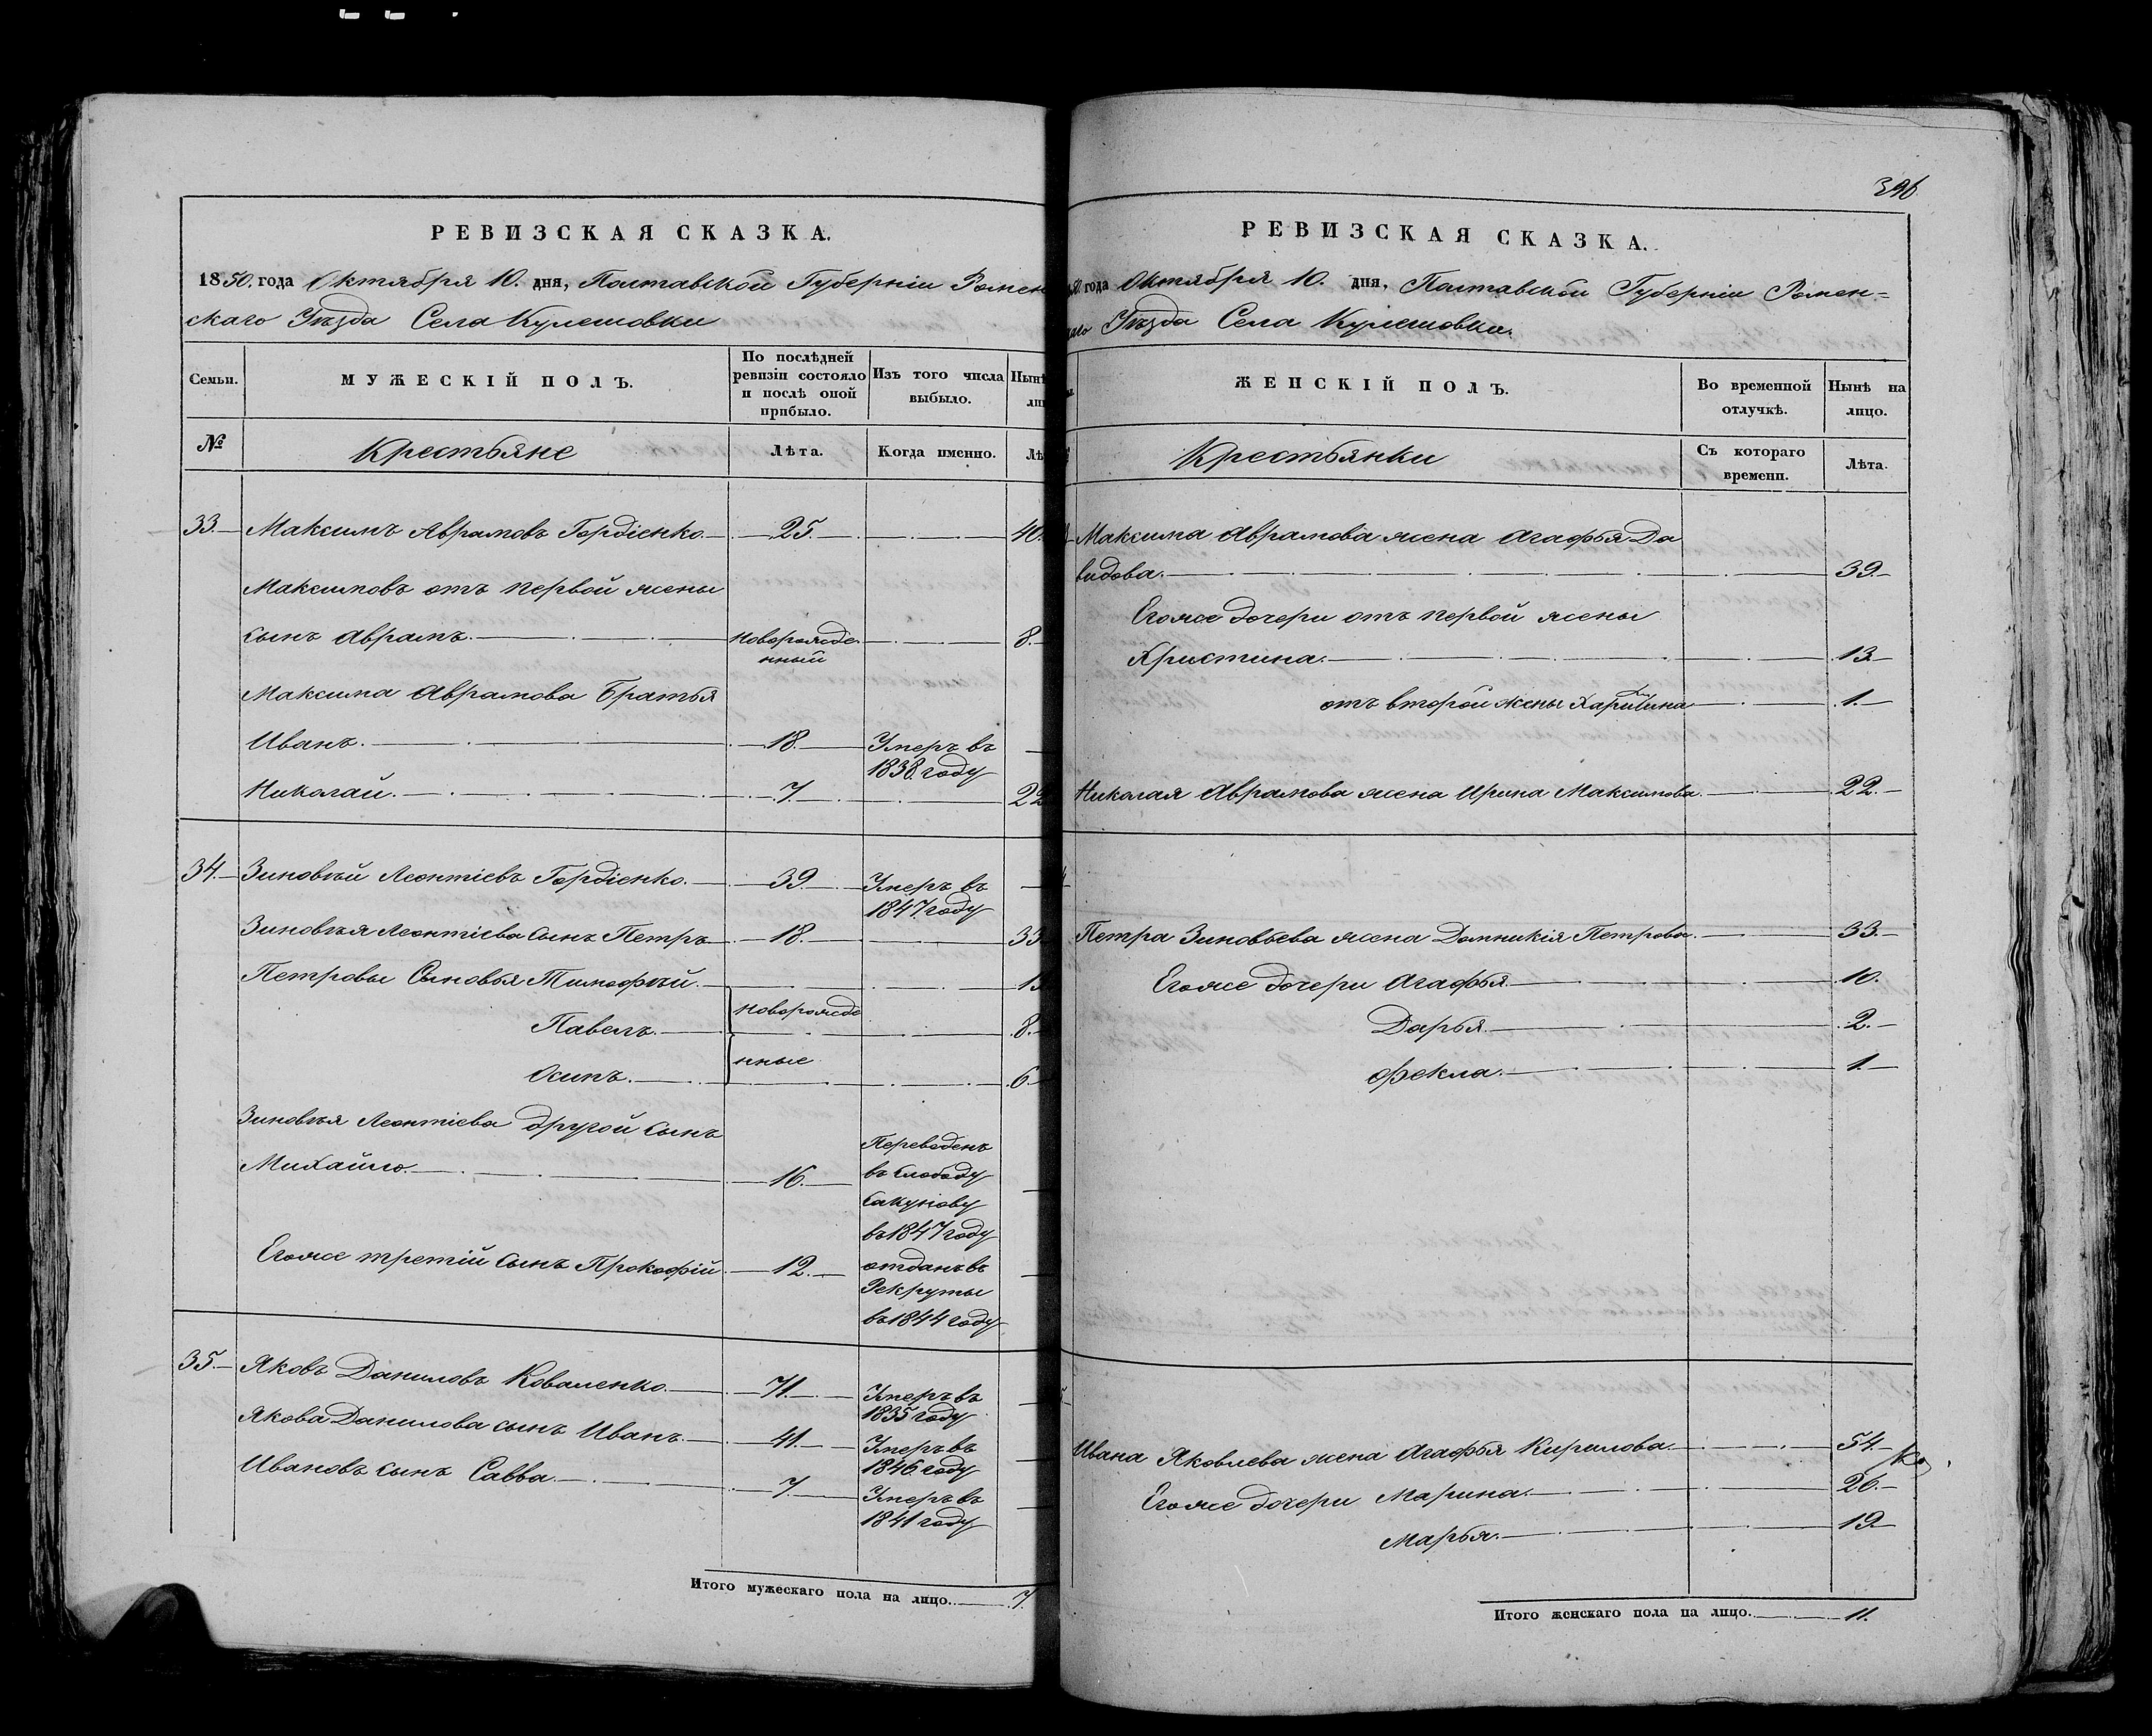 РЕВИЗСКАЯ СКАЗКА.
1850. года Октября 10. дня, Полтавской Губерніи Ромен
скаго Уѣзда Села Кулешовки
Семьи.
МУЖЕСКІЙ ПОЛЪ.
По послѣдней
ревизіи состояло
и послѣ оной
прибыло.
Изъ того числа
выбыло.
Нынѣ
№
Крестьяне
Лѣта.
Когда именно.
Лѣ
33.— Максимъ Аврамовъ Гордіенко.— 25. — 40.
Максимовъ отъ первой жены
сынъ Аврамъ. — новорожде — 8.—
нный
Максима Аврамова Братья
Иванъ. — 18. — Умеръ въ —
1838. году
Николай. — 7. — 22
34.— Зиновѣй Леонтіевъ Гордіенко. — 39. — Умеръ въ —
1847 году
Зиновѣя Леонтіева сынъ Петръ — 18. — 33
Петровы Сыновья Тимофѣй. — 13
новорожде
Павелъ. — 8.—
нные
Осипъ. — 6
Зиновѣя Леонтіева другой сынъ
Переведенъ
Михайло. — 16. — въ слободу —
Сакунову
въ 1847 году
Егоже третій сынъ Прокофій — 12. — отданъ въ —
Рекруты
въ 1844 году
35.— Яковъ Даниловъ Коваленко. — 71. — Умеръ въ —
1835 году
Якова Данилова сынъ Иванъ. — 41. — Умеръ въ —
1846. году
Ивановъ сынъ Савва. — 7. — Умеръ въ —
1841 году
Итого мужескаго пола на лицо. — 7.
396
РЕВИЗСКАЯ СКАЗКА.
года Октября 10. дня, Полтавской Губерніи Ромен=
Уѣзда Села Кулешовки.
ЖЕНСКІЙ ПОЛЪ.
Во временной
отлучкѣ.
Нынѣ на
лицо.
Крестьянки
Съ котораго
времени.
Лѣта.
Максима Аврамова жена Агафья Да
видова. — 39.—
Егоже дочери отъ первой жены
Христина. — 13.—
отъ второй жены Харитина — 1.—
Николая Аврамова жена Ирина Максимова. — 22.—
Петра Зиновьева жена Домникія Петрова. — 33.—
Егоже дочери Агафья. — 10.
Дарья. — 2.—
Фекла. — 1.—
Ивана Яковлева жена Агафья Кирилова. — 54.—
Егоже дочери Марина. — 26.—
Марья. — 19.—
Итого женскаго пола на лицо. — 11.